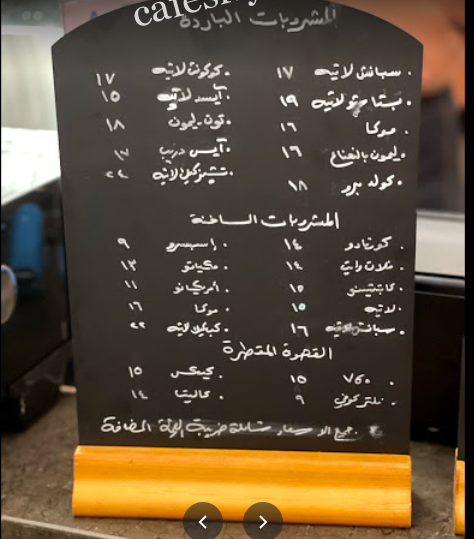 cafes
المشروبات الباردة
سبانش لاتيه ١٧ كوكونت لاتيه ١٧
بستاشيو لاتيه ١٩ آيسد لاتيه ١٥
موكا ١٦ ليمون ١٨
ليمون بالنعناع ١٦ آيس دريب ١٧
كولد برو ١٨ لاتيه ٢٤
المشروبات الساخنة
كورتادو ١٤ اسبسرو ٩
فلات وايت ١٤ مكياتو ١٣
كابتيتسنو ١٥ أمريكانو ١١
لاتيه ١٥ موكا ١٦
سبانش لاتيه ١٦ لاتيه ٢٢
القهوة المقطرة
V60 ١٥ كيمكس ١٥
فلتر كوفي ٩ كاليتا ١٤
جميع الاسعار شاملة ضريبة القيمة المضافة